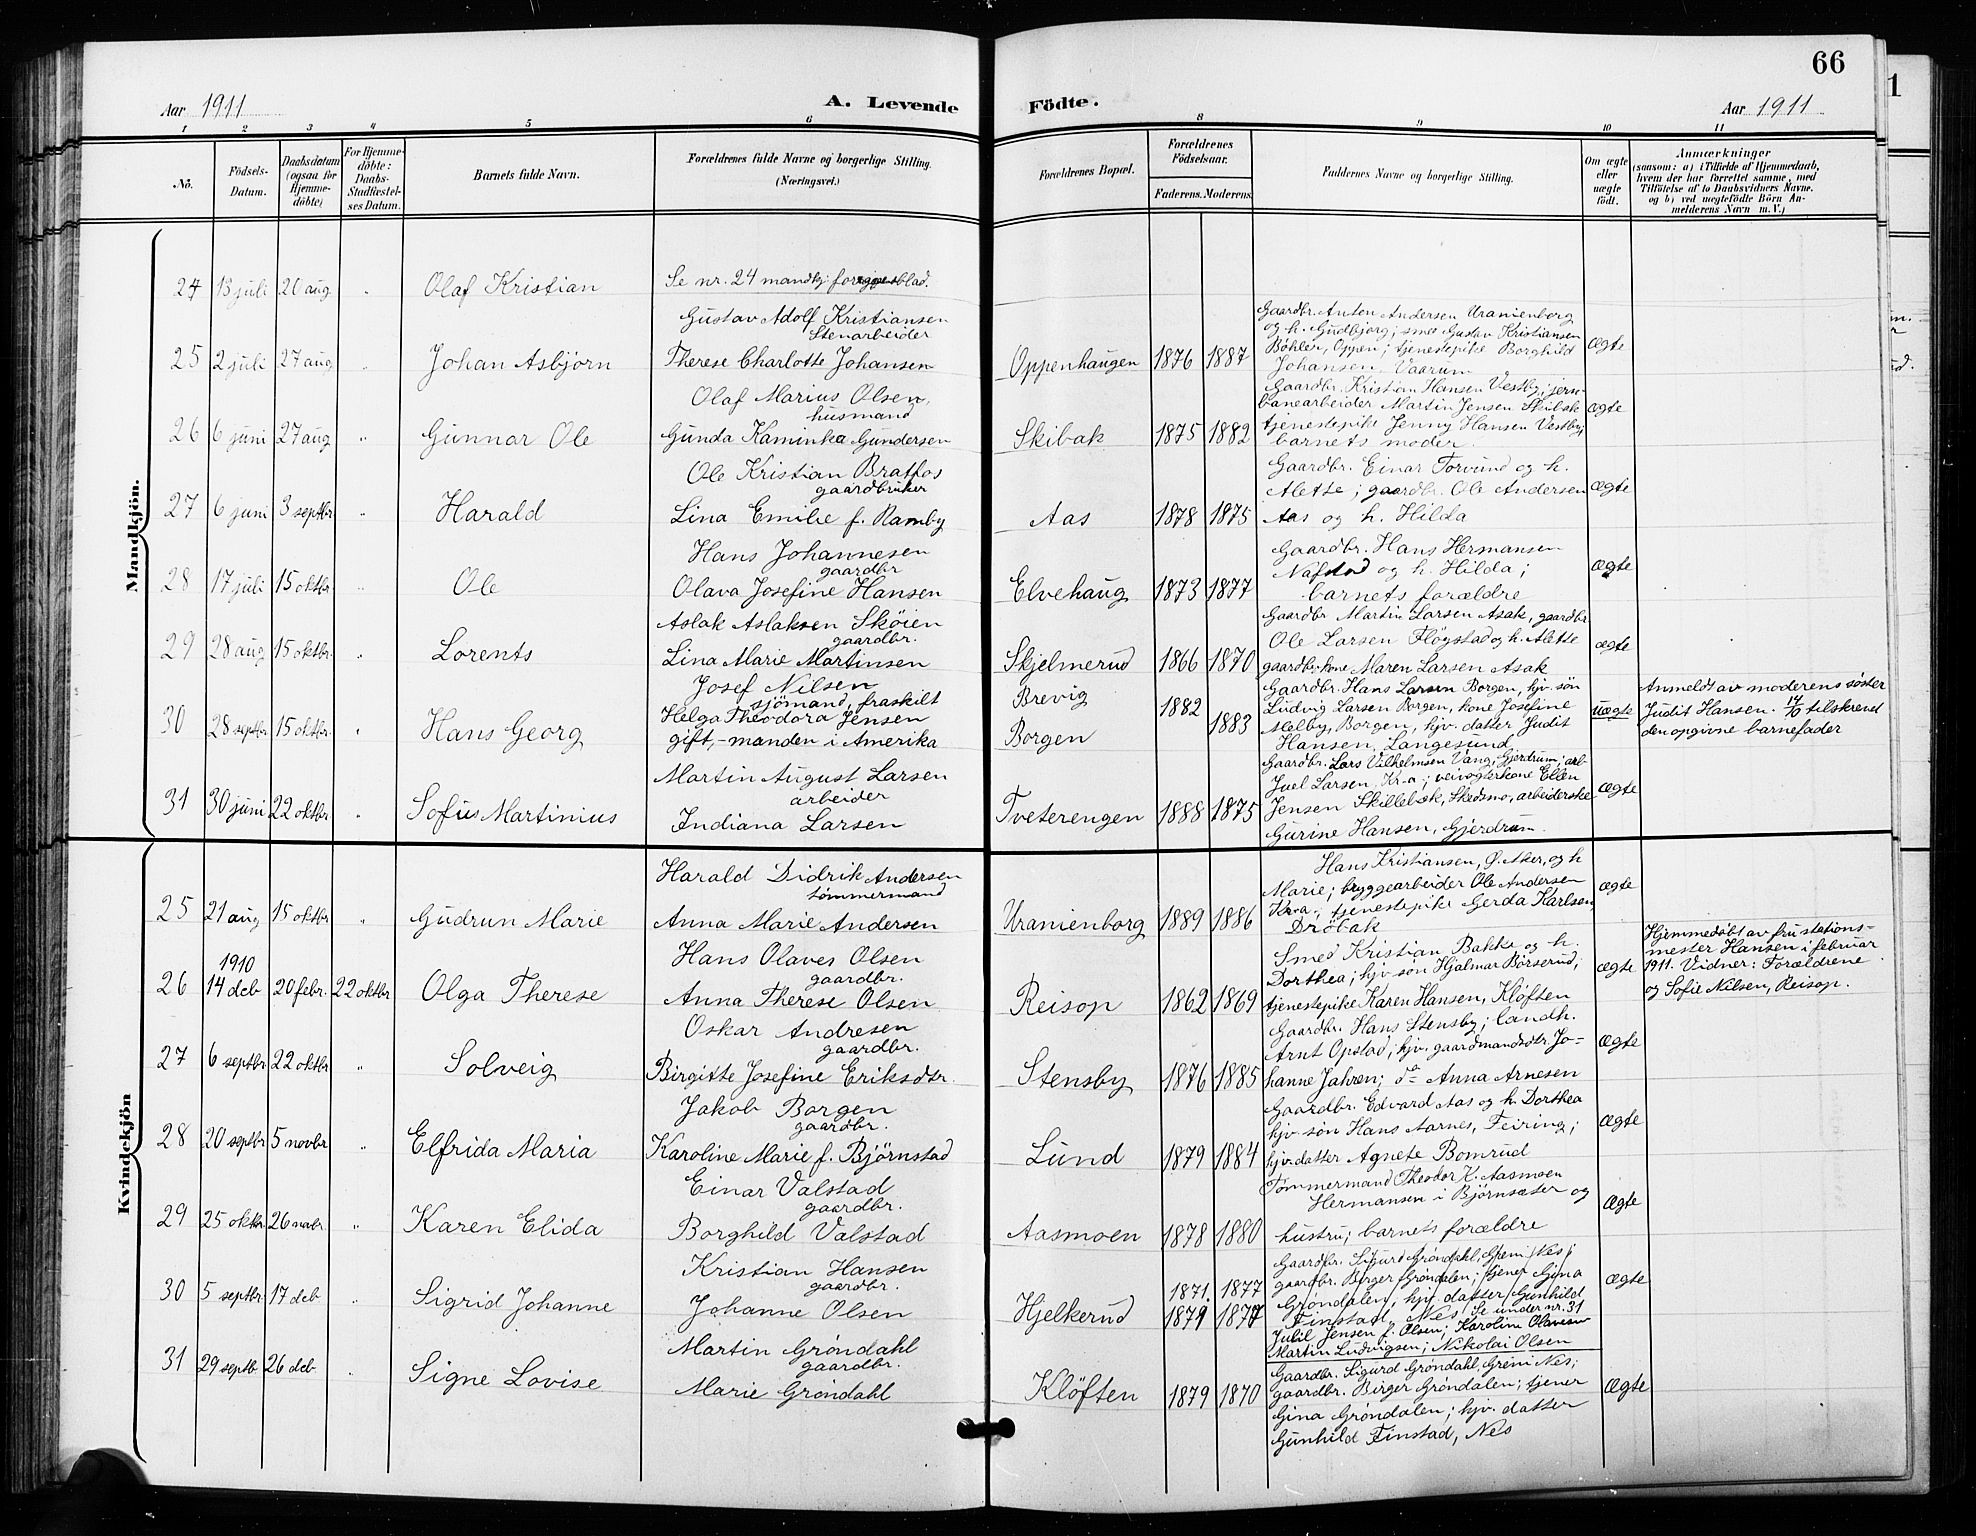 66
Aar 1911
A. Levende
Födte.
Aar 1911
1 2 3 4 5 6 8 9 10 11
No.
Födsels-
Datum.
Daabsdatum
(ogsaa for
Hjemme-
döbte)
For Hjemme-
döbte:
Daabs-
Stadfæstel-
ses Datum.
Barnets fulde Navn.
Forældrenes fulde Navne og borgerlige Stilling.
(Næringsvei.)
Forældrenes Bopæl.
Forældrenes
Födselsaar.
Faderens. Moderens.
Faddernes Navne og borgerlige Stilling.
Om ægte
eller
uægte
födt.
Anmærkninger
(saasom: a) i Tilfælde af Hjemmedaab,
hvem der har forrettet samme, med
Tilföielse af to Daabsvidners Navne.
og b) ved uægtefödte Börn An-
melderens Navn m. V.)
Mandkjön.
24 13 juli 20 aug " Olaf Kristian
Se nr. 24 mandkj. blad.
25 2 juli 27 aug " Johan Asbjørn
Gustav Adolf Kristiansen
Stenarbeider
Therese Charlotte Johansen
Oppenhaugen 1876 1887
Gaardbr. Anton Andersen Uranienborg
og h. Gudbjorg; smed Gustav Kristiansen
Bøhler, Oppen; tjenestepike Borghild
Johansen Vaarum
ægte
26 6 juni 27 aug " Gunnar Ole
Olaf Marius Olsen,
husmand
Gunda Kaminka Gundersen
Skibak 1875 1882
Gaardbr. Kristian Hansen Vestby; jern-
banearbeider Martin Jensen Skibak
tjenestepike Jenny Hansen Vestby;
barnets moder.
ægte
27 6 juni 3 septbr " Harald
Ole Kristian Bratfos
gaardbruker
Lina Emilie f. Ramby
Aas 1878 1875
Gaardbr. Einar Torvund og h.
Alette; gaardbr. Ole Andersen
Aas og h. Hilda
ægte
28 17 juli 15 oktbr. " Ole
Hans Johannesen
gaardbr
Olava Josefine Hansen
Elvehaug 1873 1877
Gaardbr. Hans Hermansen
Nafstad og h. Hilda;
barnets forældre
ægte
29 28 aug 15 oktbr. " Lorents
Aslak Aslaksen Skøien
gaardbr.
Lina Marie Martinsen
Skjelmerud 1866 1870
Gaardbr Martin Larsen Asak, gaardbr
Ole Larsen Fløgstad og h. Alette
gaardbr.kone Maren Larsen Asak
ægte
30 28 septbr 15 oktbr. " Hans Georg
Josef Nilsen
sjömand, fraskilt
Helga Theodora Jensen
gift, - manden i Amerika
Brevig 1882
Borgen 1883
Gaardbr. Hans Larsen Borgen, hjv. søn
Ludvig Larsen Borgen, kone Josefine
Melby, Borgen, hjv. datter Judit
Hansen, Langesund
uægte
Anmeldt av moderens søster
Judit Hansen. tilskrevet
den opgivne barnefader
31 30 juni 22 oktbr " Sofus Martinius
Martin August Larsen
arbeider
Indiana Larsen
Tveterengen 1888 1875
Gaardbr. Lars Vilhelmsen Vang, Gjerdrum; arb-
Juel Larsen, Kr.a; veivogterkone Ellen
Jensen Skillebæk, Skedsmo, arbeiderske
Gurine Hansen, Gjerdrum.
ægte
Kvindekjön
25 21 aug 15 oktbr " Gudrun Marie
Harald Didrik Andersen
tømmermand
Anna Marie Andersen
Uranienborg 1889 1886
Hans Kristiansen, Ø. Aker, og h
Marie; bryggearbeider Ole Andersen
Kr.a; tjenestepike Gerda Karlsen,
Drøbak
ægte
26 1910
14 deb 20 febr. 22 oktbr Olga Therese
Hans Olaves Olsen
gaardbr.
Anna Therese Olsen
Reisop 1862 1869
Smed Kristian Bakke og h.
Dorthea; hjv. søn Hjalmar Børserud;
tjenestepike Karen Hansen, Kløften
ægte
Hjemmedøbt av fru stations-
mester Hansen i februar
1911. Vidner: Forældrene
og Sofie Nilsen, Reisop.
27 6 septbr 22 oktbr " Solveig
Oskar Andresen
gaardbr.
Birgitte Josefine Eriksdtr.
Stensby 1876 1885
Gaardbr. Hans Stensby; landh.
Arnt Opstad; hjv. gaardmandsdtr. Jo-
hanne Jahren; do Anna Arnesen
ægte
28 20 septbr 5 novbr " Elfrida Maria
Jakob Borgen
gaardbr.
Karoline Marie f. Bjørnstad
Lund 1879 1884
Gaardbr. Edvard Aas og h. Dorthea
hjv. søn Hans Aarnes, Feiring;
hjv. datter Agnete Bomrud
ægte
29 25 oktbr 26 novbr. " Karen Elida
Einar Valstad
gaardbr.
Borghild Valstad
Aasmoen 1878 1880
Tømmermand Theodor K. Aasmoen
Hermansen i Bjørnsæter og
hustru; barnets forældre
ægte
30 5 septbr 17 deb " Sigrid Johanne
Kristian Hansen
gaardbr.
Johanne Olsen
Hjelkerud 1871. 1877
1871 1877
Gaardbr. Sigurd Grøndahl, Greni, Nes;
gaardbr. Birger Grøndalen; tjener Gina
Grøndalen; hjv. datter Gunhild
Finstad, Nes Se under nr. 31
Julil Jensen f. Olsen; Karoline Olavesen
Martin Ludvigsen; Nikolai Olsen
ægte
31 29 septb. 26 deb " Signe Lovise
Martin Grøndahl
gaardbr.
Marie Grøndahl
Kløften 1879 1870
Gaardbr. Sigurd Grøndahl, Greni Nes;
gaardbr. Birger Grøndalen; tjener
Gina Grøndalen; hjv. datter
Gunhild Finstad, Nes
ægte